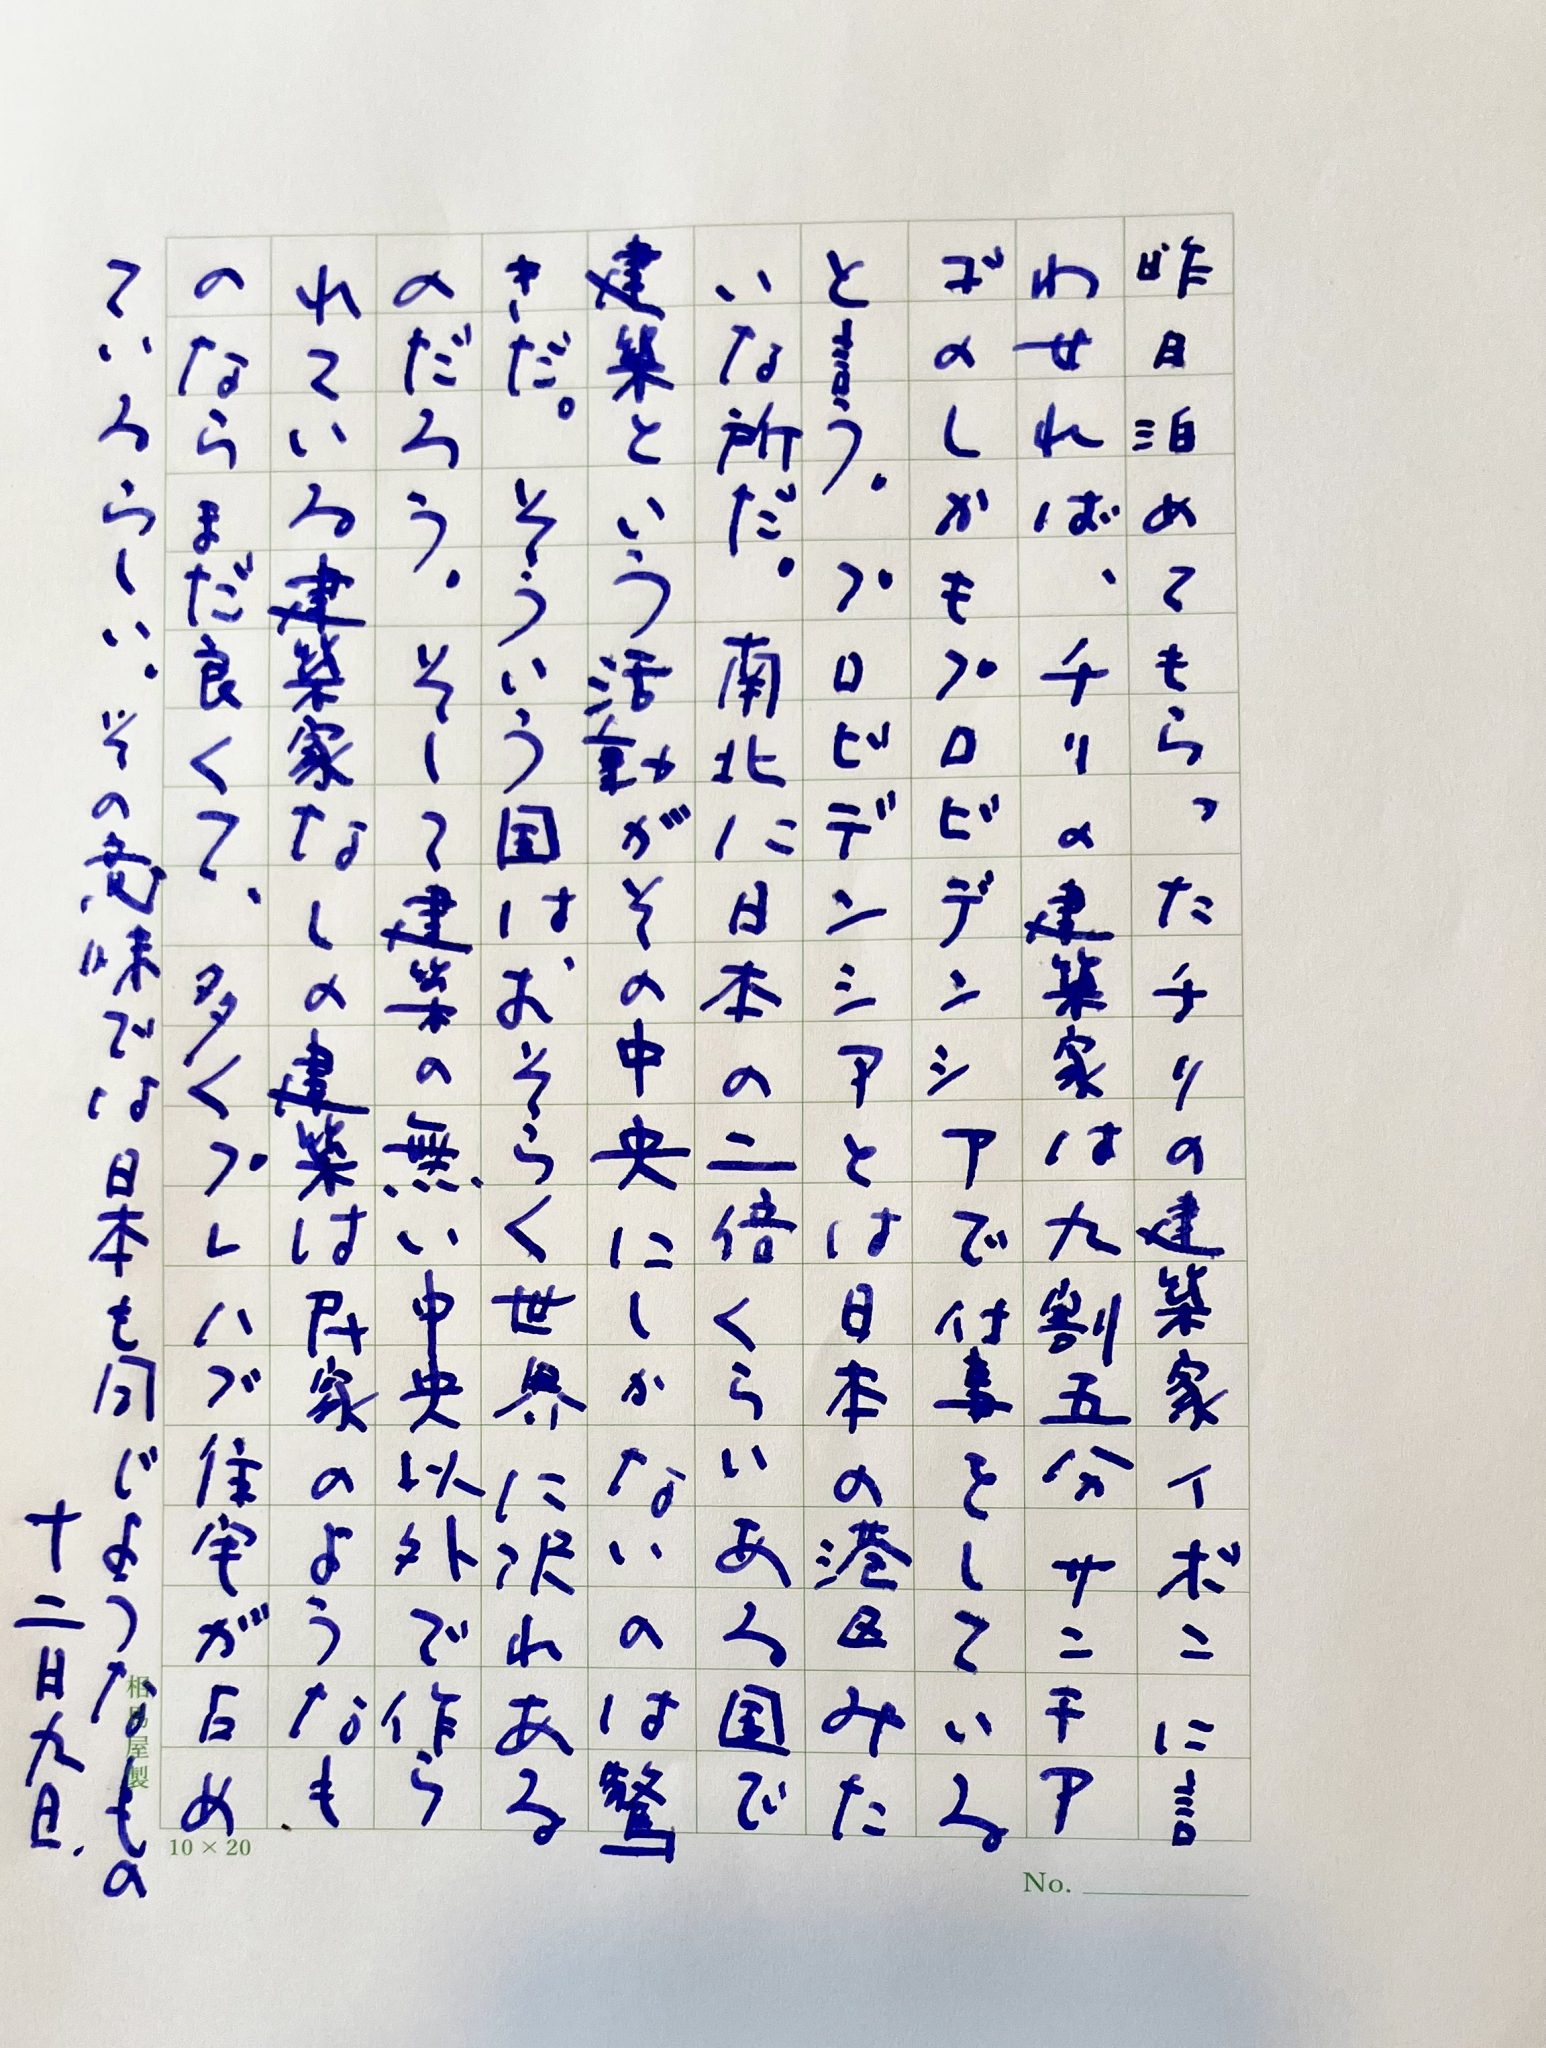 昨日泊めてもらったチリの建築家イボニに言
わせれば、チリの建築家は九割五分サニチア
ゴのしかもプロビデンシアで仕事をしている
と言う。プロビデンシアとは日本の港区みた
いな所だ。南北に日本の二倍くらいある国で
建築という活動がその中央にしかないのは驚
きだ。そういう国はおそらく世界に沢れある
のだろう。そして建築の無い中央以外で作ら
れている建築家なしの建築は民家のようなも
のならまだ良くて、多くプレハブ住宅が占め
ているらしい。その意味では日本も同じようなもの
十二月九日.
相馬屋製
10×20
No.